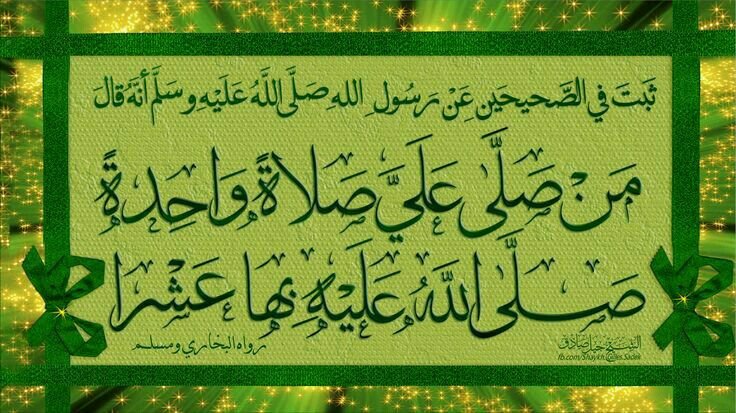 ثَبَتَ في الصَّحيحَين عَنْ رَسُولِ اللهِ صَلَّى اللَّهُ عَلَيْهِ وسَلَّم أنَّهُ قالَ
مَنْ صَلَّى عَلَيَّ صَلاةً وَاحِدةً
صَلَّى اللَّهُ عَلَيْهِ بِها عَشْرا
رواه البخاري ومسلم
الشيخ جيل صادق
fb.com/Shaykh.Gilles.Sadek